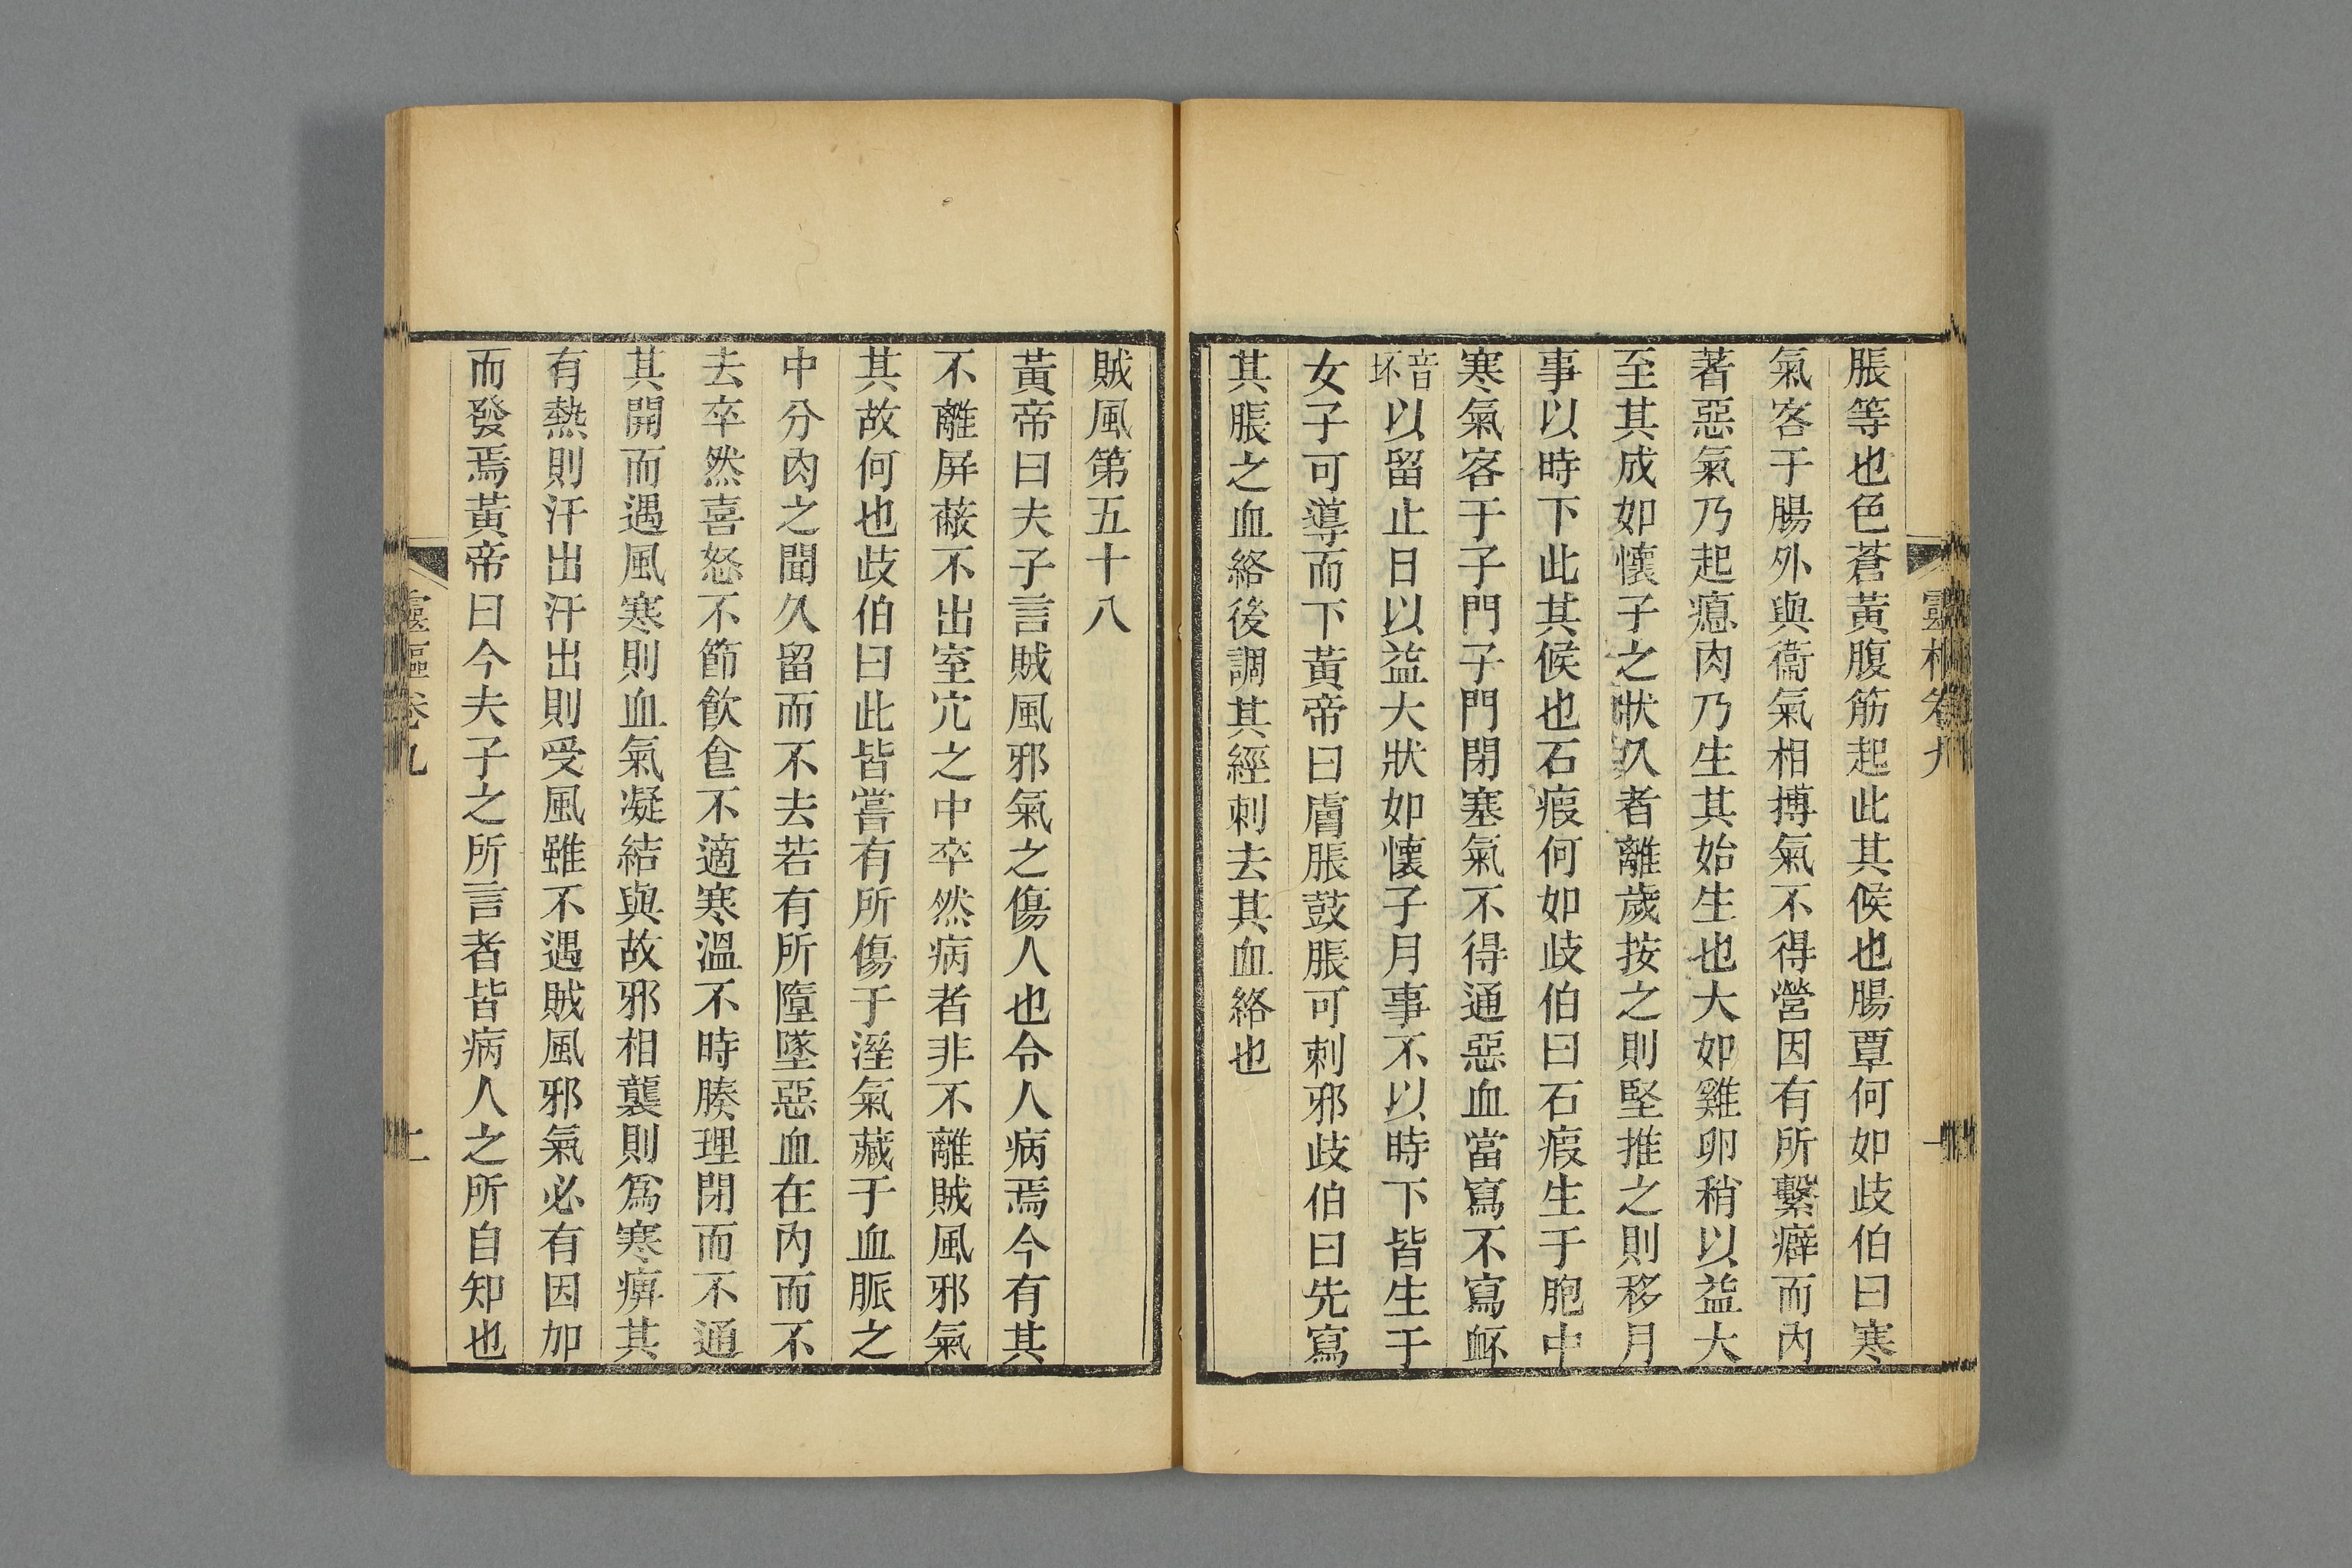 脹等也色蒼黃腹筋起此其候也腸覃何如歧伯曰寒
氣客于腸外與衞氣相搏氣不得營因有所繫癖而內
著惡氣乃起瘜肉乃生其始生也大如雞卵稍以益大
至其成如懷子之狀久者離歲按之則堅推之則移月
事以時下此其候也石瘕何如歧伯曰石瘕生于胞中
寒氣客于子門子門閉塞氣不得通惡血當寫不寫衃
音坏以留止日以益大狀如懷子月事不以時下皆生于
女子可導而下黃帝曰膚脹鼓脹可刺邪歧伯曰先寫
其脹之血絡後調其經刺去其血絡也
賊風第五十八
黃帝曰夫子言賊風邪氣之傷人也令人病焉今有其
不離屏蔽不出室穴之中卒然病者非不離賊風邪氣
其故何也歧伯曰此皆嘗有所傷于溼氣藏于血脈之
中分肉之閒久留而不去若有所墮墜惡血在內而不
去卒然喜怒不節飮食不適寒溫不時腠理閉而不通
其開而遇風寒則血氣凝結與故邪相襲則爲寒痹其
有熱則汗出汗出則受風雖不遇賊風邪氣必有因加
而發焉黃帝曰今夫子之所言者皆病人之所自知也
靈樞卷九